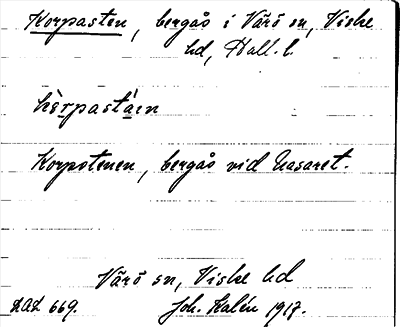 Korpasten, bergås i Värö sn, Viske
hd, Hall. l.
kòrpastàen
Korpstenen, bergås vid Nasaret.
Värö sn, Viske hd
LAL 669.
Joh. Kalén 1917.